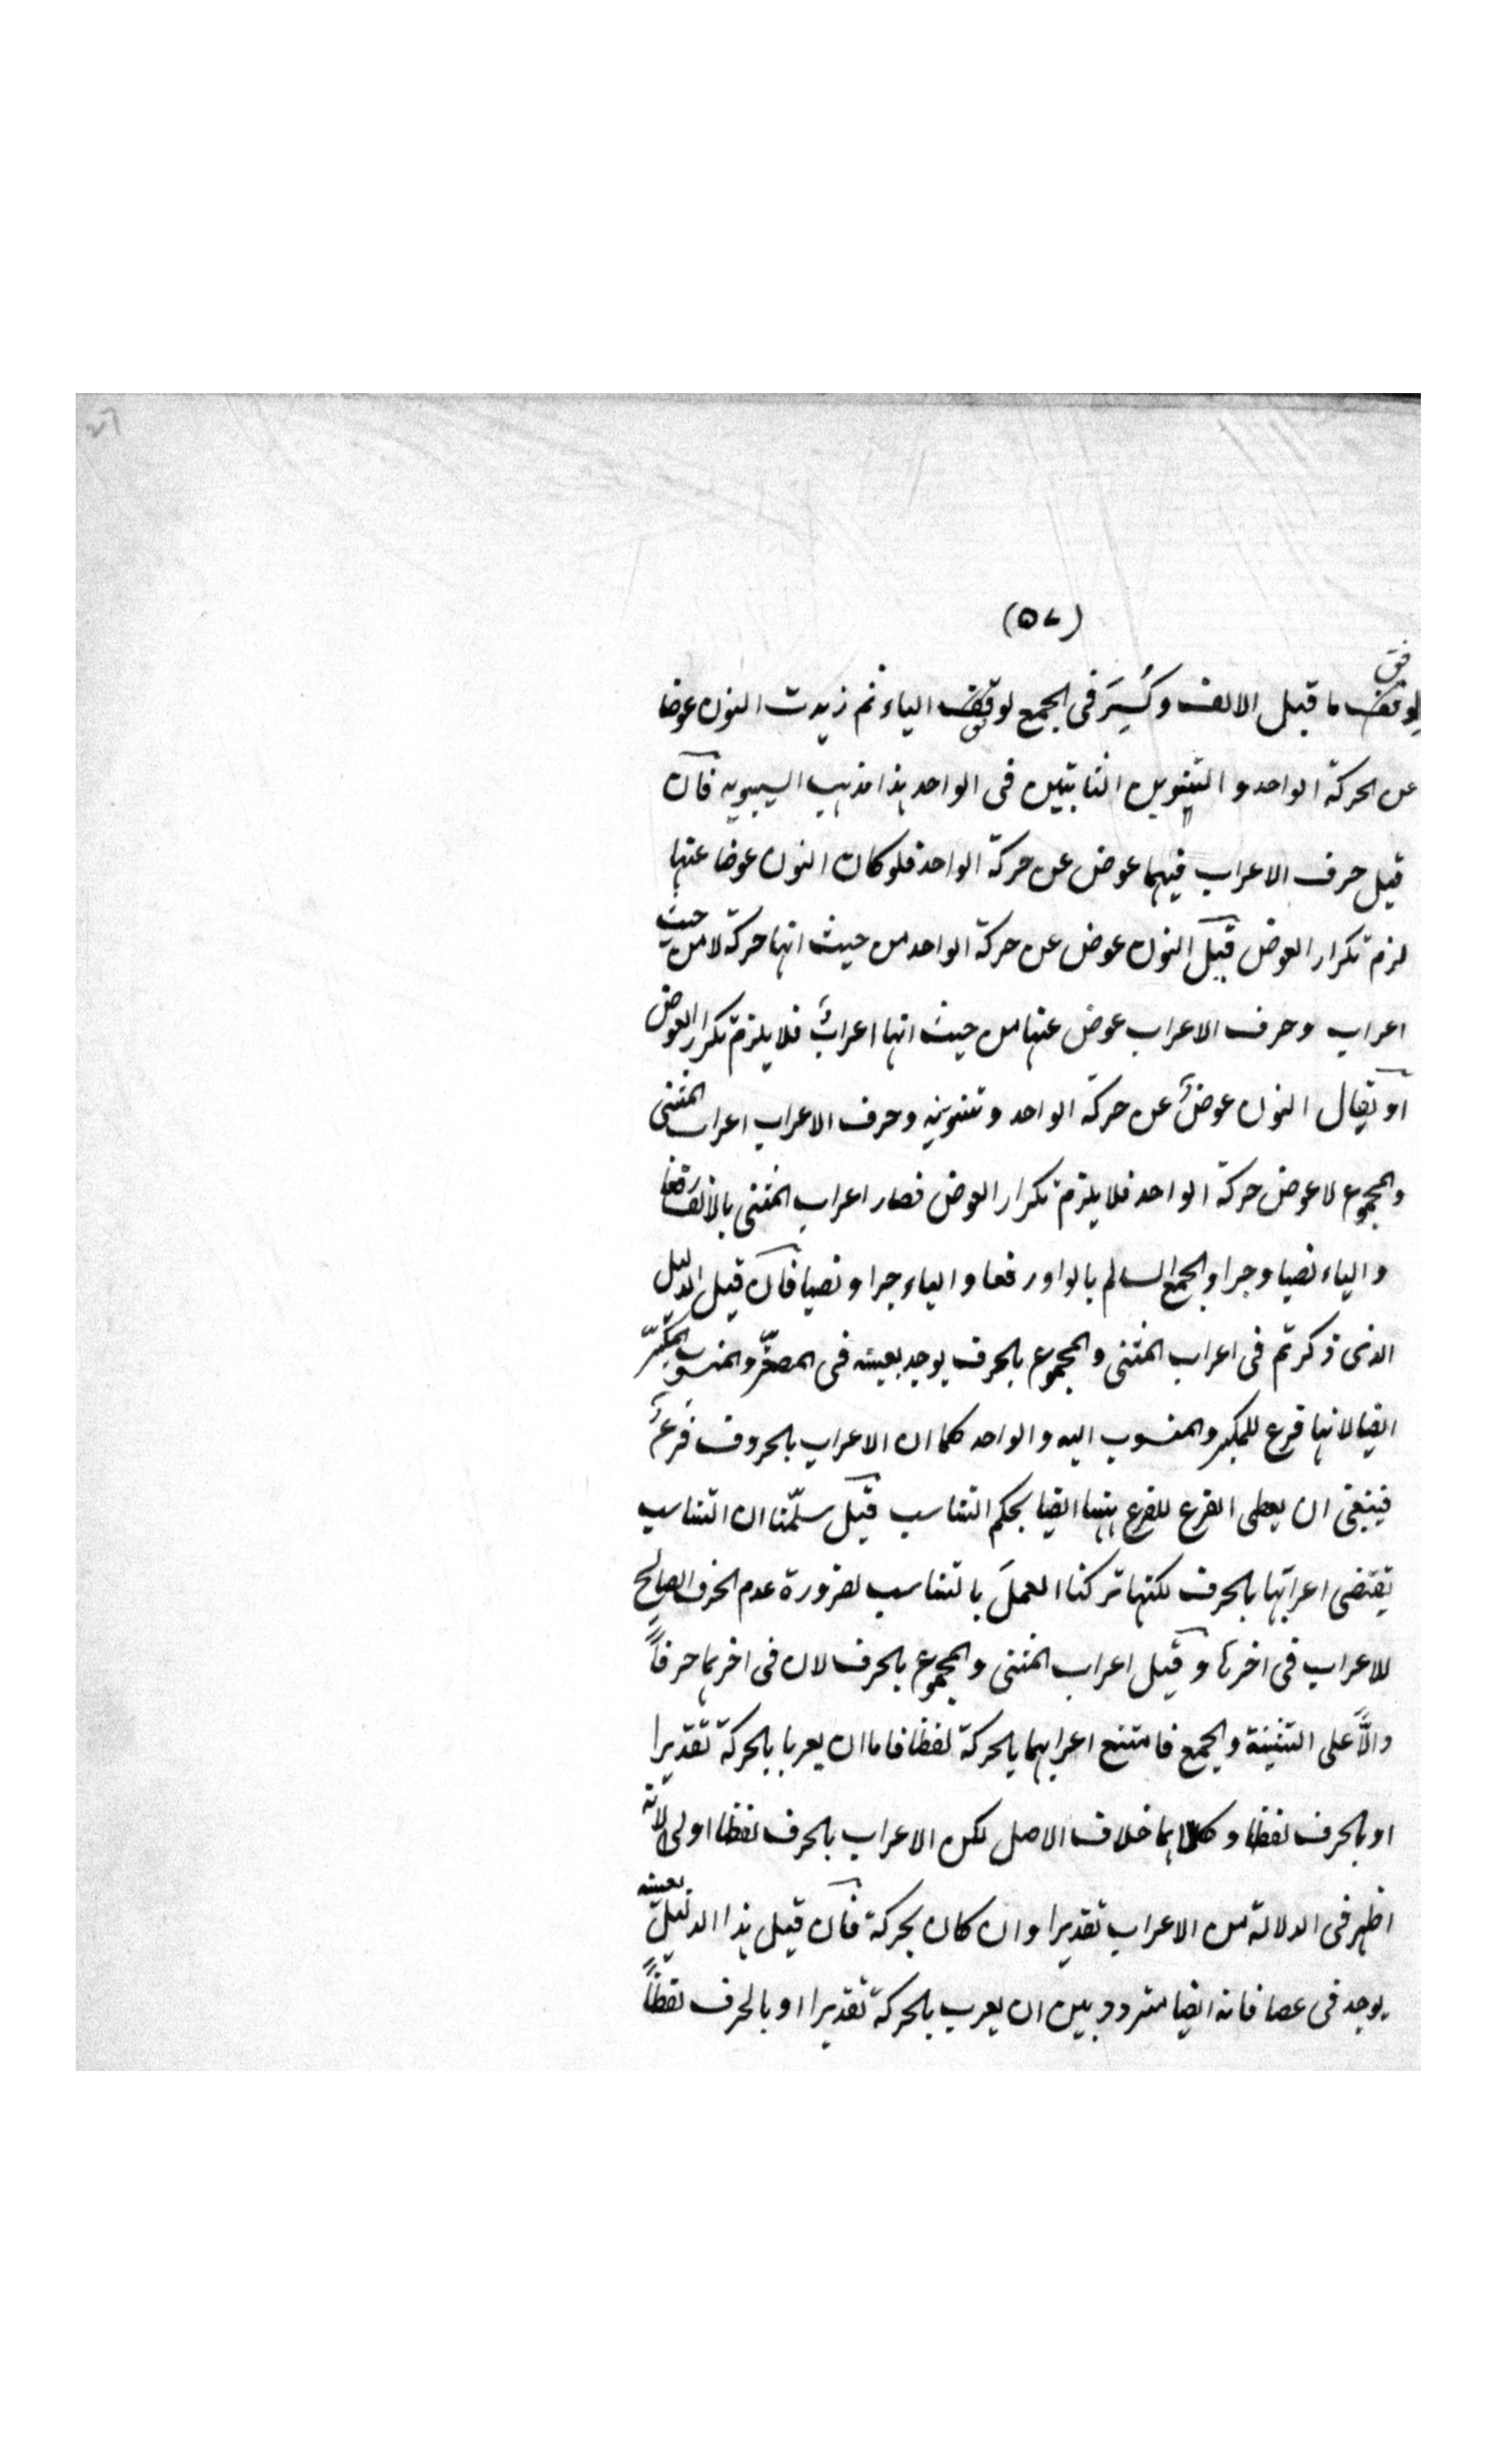 (٥٧)
لوفق ما قبل الالف وكُسِرَ فى الجمع لوفق الياء ثم زيدت النون عوضا
عن الحركة الواحد و التنوين الثابتين فى الواحد هذا مذهب السيبويه فان
قيل حرف الاعراب فيهما عوض عن حركة الواحد فلو كان النون عوضا عنها
لزم تكرار العوض قيل النون عوض عن حركة الواحد من حيث انها حركة لا من حيث
اعراب وحرف الاعراب عوض عنها من حيث انها اعرابٌ فلا يلزم تكرار العوض
او يقال النون عوضٌ عن حركة الواحد و تنوينه وحرف الاعراب اعراب المثنى
والمجموع لا عوض حركة الواحد فلا يلزم تكرار العوض فصار اعراب المثنى بالالف رفعا
والياء نصبا وجرا والجمع السالم بالواو رفعا والياء جرا ونصبا فان قيل الدليل
الذى ذكرتم فى اعراب المثنى والمجموع بالحرف يوجد بعينه فى المصغّر والمنسوب المكسّر
ايضا لانها فرع للمكبر والمنسوب اليه والواحد كما ان الاعراب بالحروف فَرعٌ
فينبغى ان يعطى الفرع للفرع ههنا ايضا بحكم التناسب قيل سلّمنا ان التناسب
يقتضى اعرابها بالحرف لكنها تركنا العملَ بالتناسب لضرورة عدم الحرف الصالح
للاعراب فى اخرها وقيل اعراب المثنى والمجموع بالحرف لان فى اخرهما حرفاً
دالاًّ على التثنية والجمع فامتنع اعرابهما بالحركة لفظا فاما ان يعربا بالحركة تقديرا
او بالحرف لفظا وكلاهما خلاف الاصل لكن الاعراب بالحرف لفظا اولى لانّه
اظهر فى الدلالة من الاعراب تقديرا وان كان بحركة فان قيل هذا الدليل بعينه
يوجد فى عصا فانه ايضا متردد بين ان يعرب بالحركة تقديرا او بالحرف لفظاً